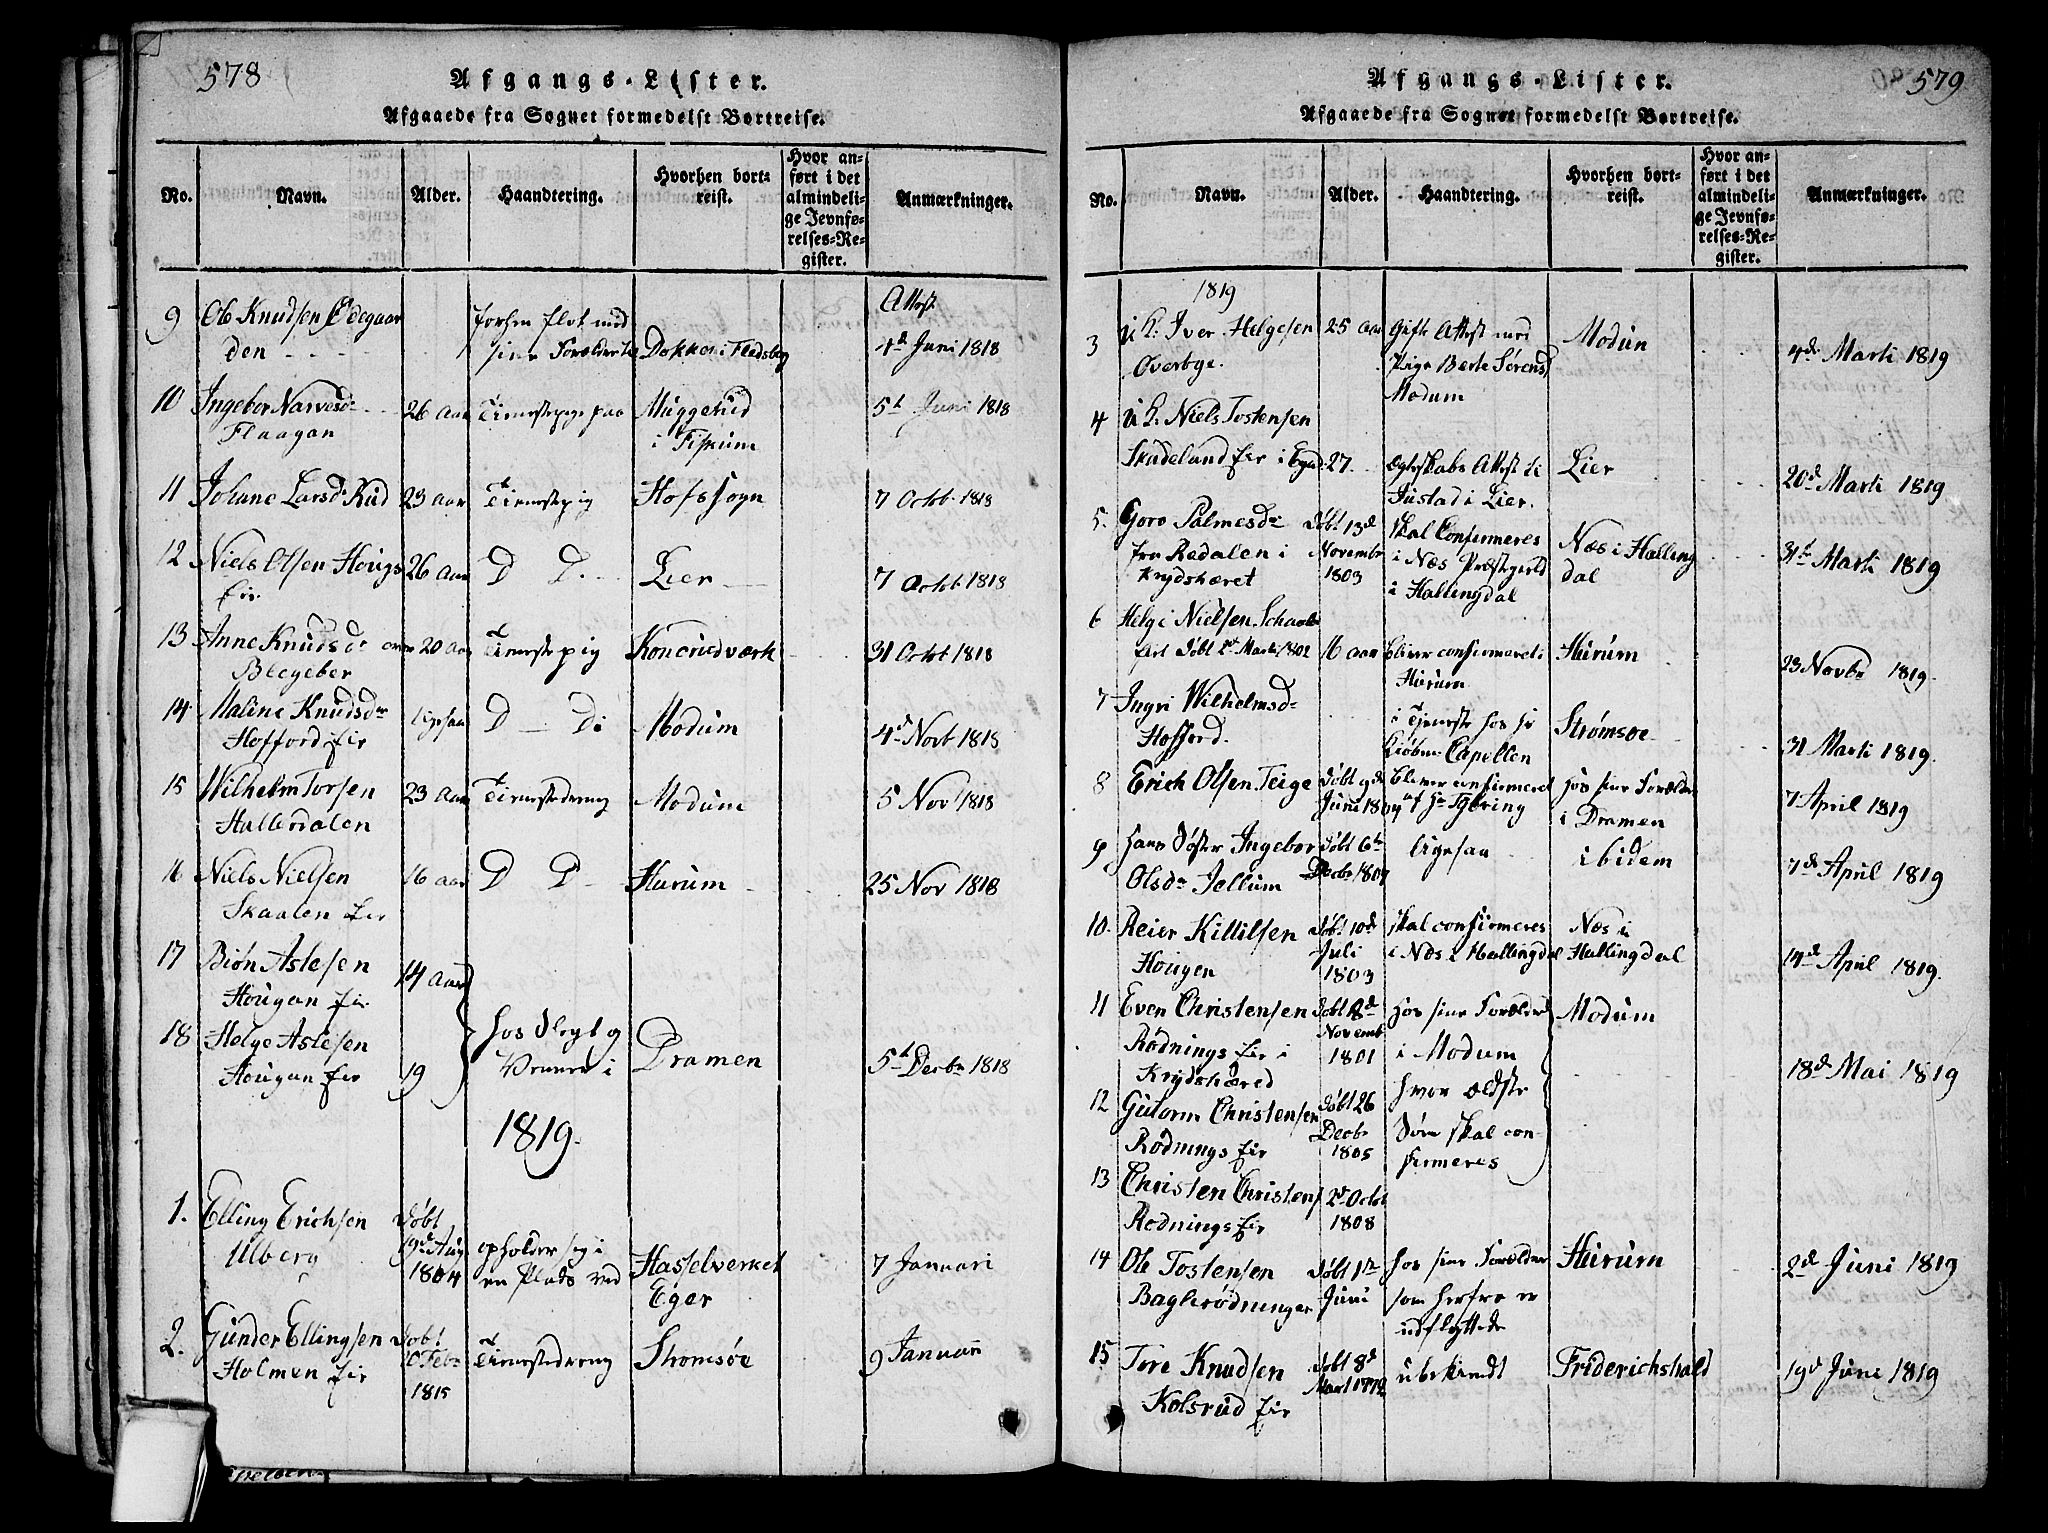 578
Afgangs-Lister.
Afgaaede fra Sognet formedelst Bortreise.
No. Navn. Alder. Haandtering. Hvorhen bortreist. Hvor anført i det almindelige Jevnførelses-Register. Anmærkninger.
9 Ole Knudsen Ødegaarden
Dokken i Flesberg
Attest
4de Juni 1818
10 Ingebor Narvesdr
Flaagan
26 aar
Tienestepige paa
Muggerud
i Fiskum
5te Juni 1818
11 Johane Larsdr Rud
23 aar
Tienestepig
Hofs Sogn
7 Octb 1818
12 Niels Olsen Hougs
Eir
26 aar
D D
Lier
7 Octb 1818
13 Anne Knudsdr
Blegeber
20 aar
Tienestepig
31 Octb 1818
14 Maline Knudsdr
Hofford Eir
ligesaa
D D
Modum
4de Novb 1818
15 Wilhelm Torsen
Hallerdalen
23 aar
Tienestedreng
Modum
5 Novb 1818
16 Niels Nielsen
Skaalen Eir
16 aar
D D
Hurum
25 Nov 1818
17 Biøn Aslesen
Hougan Eir
14 aar
18 Helge Aslesen
Hougan Eir
19
hos Slegt og
Venner i
Dramen
5te Decbr 1818
1819.
1. Elling Erichsen
Ulberg
døbt
19de Aug
1804
opholder sig i
en Plads ved
Hasselverket
Eger
7 Januari
2. Gunder Ellingsen
Holmen Eir
Døbt
10 Febr
1815
Tienestedreng
Stromsøe
9 Januari
579
Afgangs-Lister.
Afgaaede fra Sognet formedelst Bortreise.
No. Navn. Alder. Haandtering. Hvorhen bortreist. Hvor anført i det almindelige Jevnførelses-Register. Anmærkninger.
1819
3 U. K. Iver Helgesen
Overbye.
25 aar
Gifte Attest med
Pige Berte Sørens
Modum
Modun
4de Marti 1819
4 U. K. Niels Tostensen
Skudeland Eir i Egns
27
Egteskabs Attest ti
Justad i Lier.
Lier
20de Marti 1819
5. Goro Palmesdr
fra Redalen i
Krydsheret
døbt 13de
Novembr
1803
skal Confirmeres
i Næs Præstegield
i Hallengdal
Næs i Halleng
dal
31te Marti 1819
6 Helge Nielsen
døbt 2de Marti 1802
16 aar
bliver confirmeret i
Hurum
Hurum
23 Novbr 1819.
7 Ingri Wilhelmsd
Hofford.
i Tieneste hos hr
Kiøbm Capellen
Strømsoe
31 Marti 1819.
8 Erich Olsen Teige
døbt 9de
Juni 1804
bliver confirmeret
af Hr
hos sine Forældre
i Dramen
7 April 1819
9 hans Søster Ingebor
Olsdr Jellum
døbt 6te
Decbr 1807
ligesaa
ibidem
7de April 1819
10. Reier Killilsen
Hougen
døbt 10de
Juli
1803
skal confirmeres
i Næs i Hallingdal
Næs i
Hallingdal
14de April 1819.
11 Even Christensen
Rødnings Eir i
Krydshæred
døbt 8de
Novemb
1801
hos sine Forældre
i Modum
hvor ældste
Søn skal con-
firmeres
Modum
18de Mai 1819
12 Gutorm Christensen
Rødnings Eir
døbt 26
Decbr
1805
13 Christen Christens
Rødnings Eir
2de Octb
1808
14 Ole Tostensen
Baglerødningen
døbt 1te
Juni
hos sine Forældre
som herfra er
udflyttede
Hurum
2de Juni 1819
15 Tore Knudsen
Kolsrud Eir
døbt 8de
ubekiendt
Friderichshald
19de Juni 1819